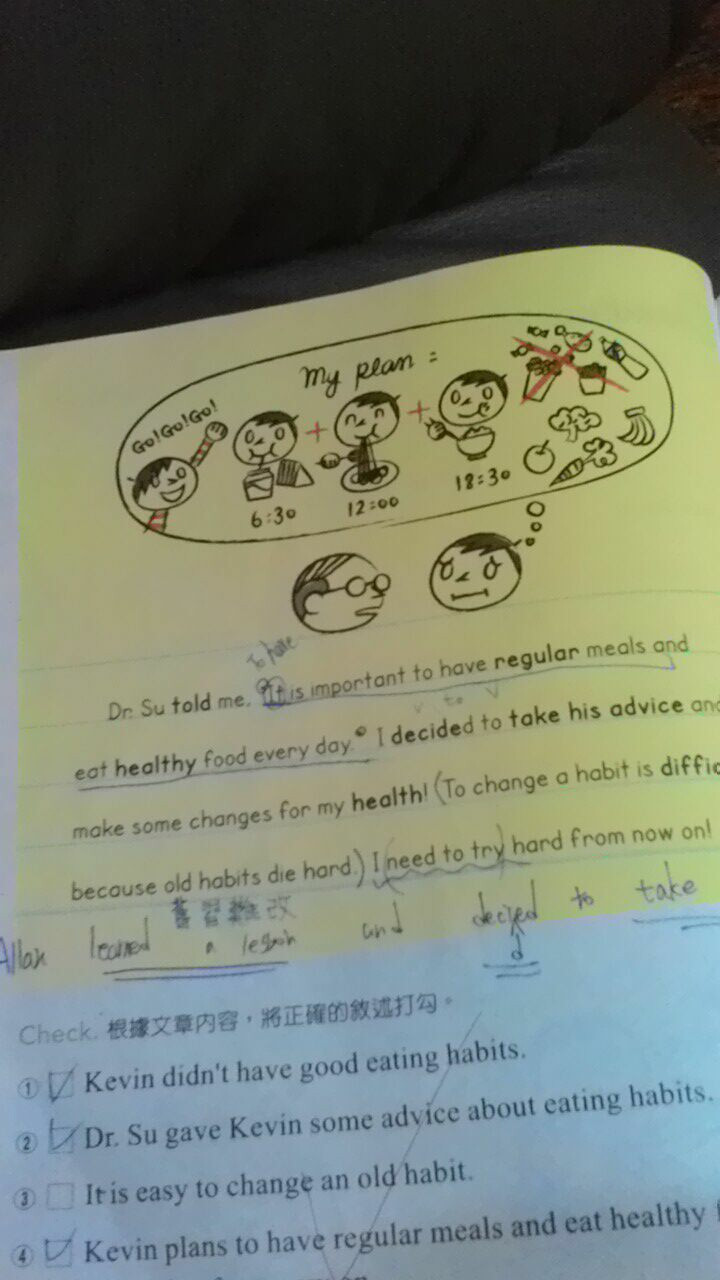 My plan :
Go! Go! Go!
6:30
12:00
18:30
To have
Dr. Su told me, "It is important to have regular meals and
to
eat healthy food every day." I decided to take his advice and
make some changes for my health! (To change a habit is
because old habits die hard.) I need to try hard from now on!
舊習難改
Allan learned a lesson and decided to take
d
Check. 根據文章內容，將正確的敘述打勾。
① Kevin didn't have good eating habits.
② Dr. Su gave Kevin some advice about eating habits.
③ It is easy to change an old habit.
④ Kevin plans to have regular meals and eat healthy